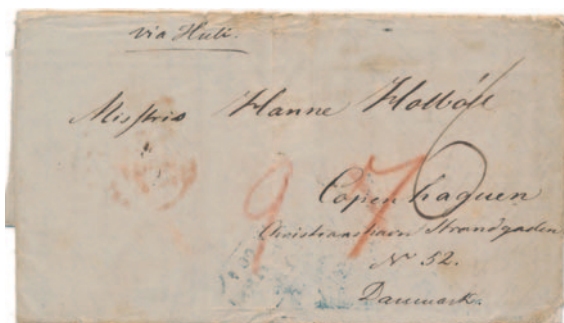 via Hull.
Misstris Hanne Holböll
Copenhaguen
Christianshavn Strandgaden
N° 52.
Danmark.
97